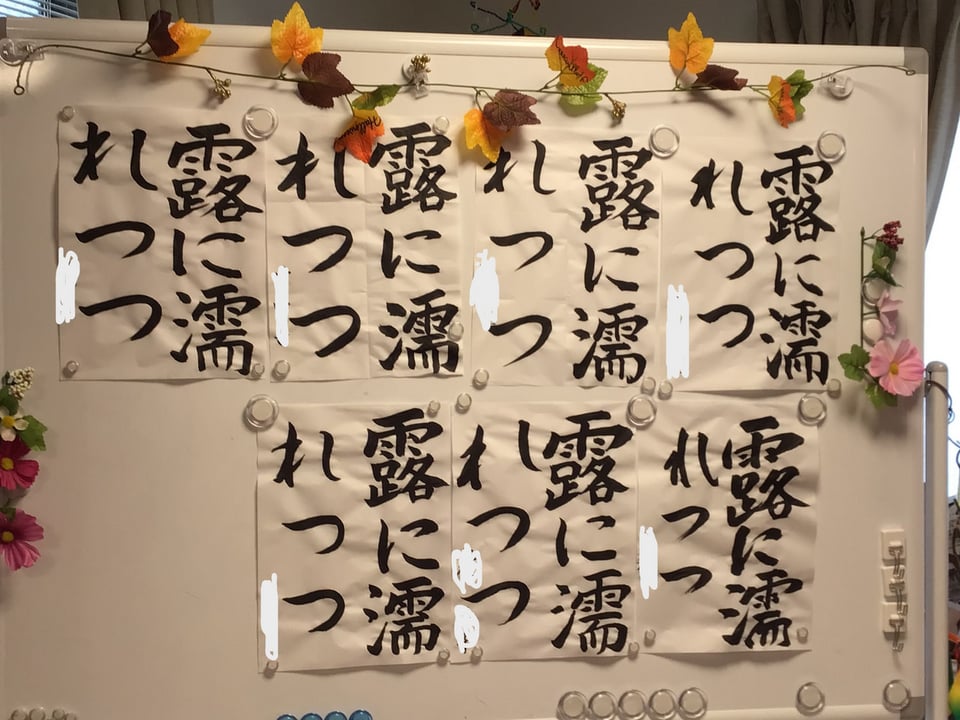 Halloween
露に濡
れつつ
露に濡
れつつ
露に濡
れつつ
露に濡
れつつ
露に濡
れつつ
露に濡
れつつ
露に濡
れつつ